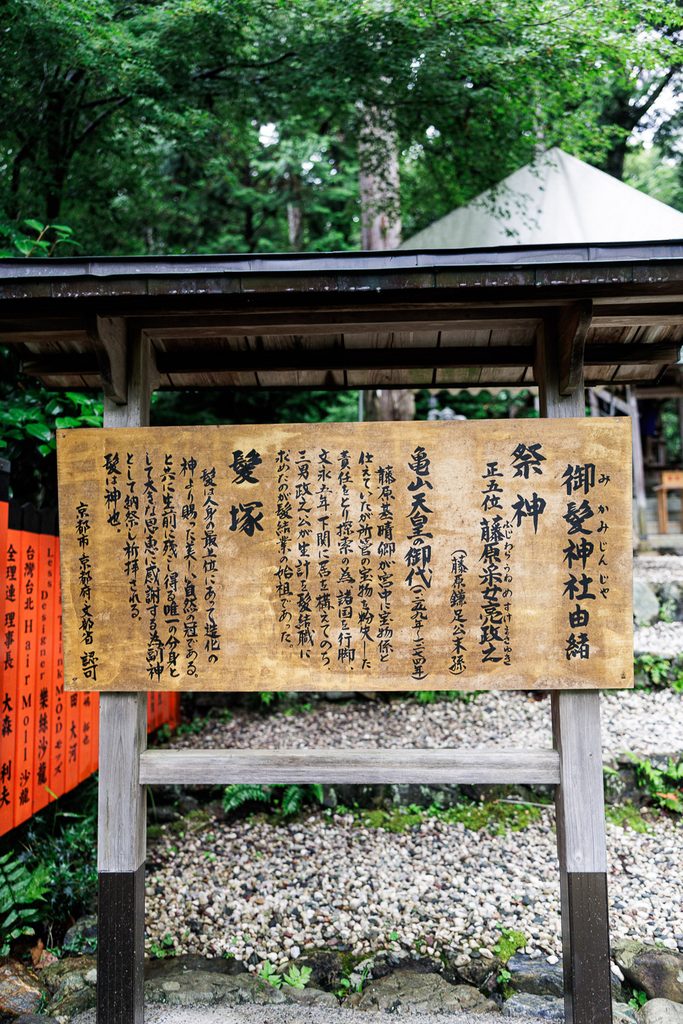 御髪神社由緒
みかみじんじゃ
祭神
正五位 藤原采女亮政之
ふじわらうねめのすけまさゆき
(藤原鎌足公末孫)
亀山天皇御代(一二五九〜一二七四年)
藤原基晴卿が宮中に宝物係と
仕えていたが所管の宝物を紛失した
責任をとり探索の為諸国を行脚、
文永五年下関に居を構えてのち、
三男政之公が生計を髪結職に
求めたのが髪結業の始祖であった。
髪塚
髪は人身の最上位にあって造化の
神より賜った美しい自然の冠である。
と共に生前に残し得る唯一の分身と
して大きな恩恵に感謝する為副神
として納祭し祈拝される。
髪は神也。
京都市 京都府 文部省 認可
Less is More
Designer
MOD.モッズ
台湾台北 HairMoll 沙龍
樂絲沙龍
全理連 理事長 大森 利夫